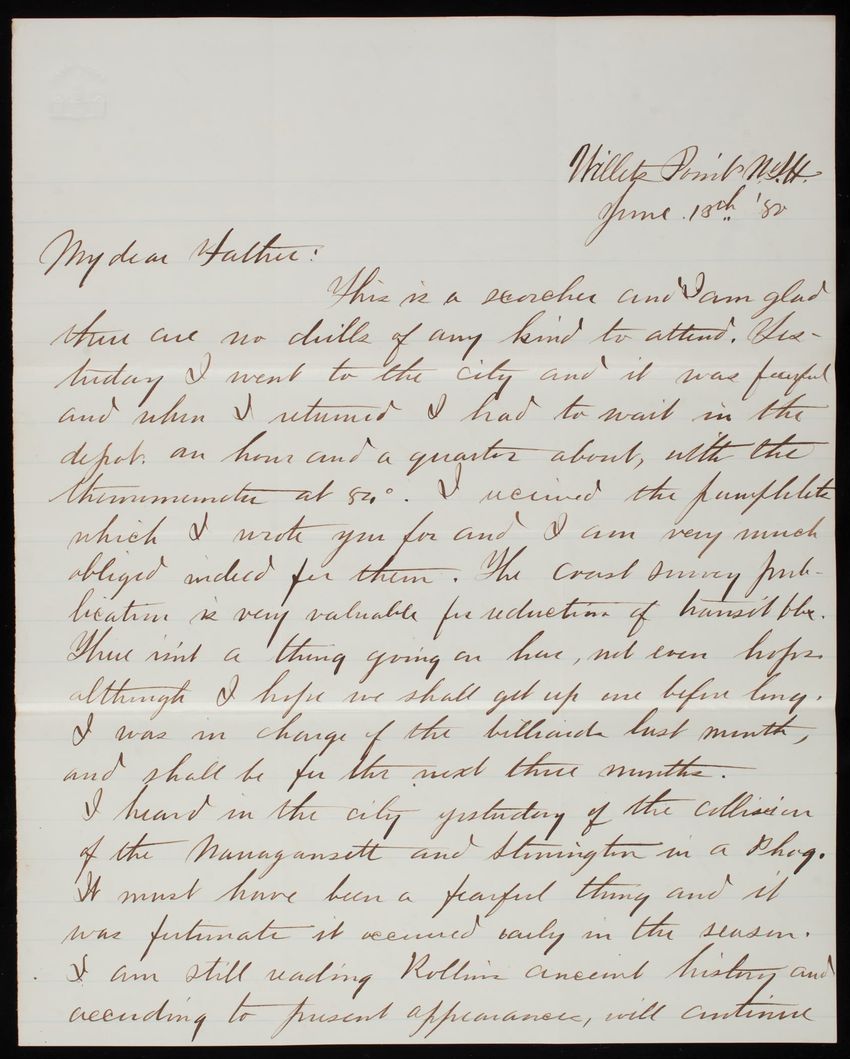 Willets Point N.Y.H.
June 13th '80
My dear Father:
This is a scorcher and I am glad
there are no drills of any kind to attend. Yes-
terday I went to the city and it was fearful
and when I returned I had to wait in the
depot. an hour and a quarter about, with the
thermometer at °. I received the pamphlets
which I wrote you for and I am very much
obliged indeed for them. The Coast Survey pub-
lication is very valuable for reduction of transit obs.
There isn't a thing going on here, not even hops
although I hope we shall get up one before long.
I was in charge of the billiards last month,
and shall be for the next three months.
I heard in the city yesterday of the collision
of the Narragansett and Stonington in a
It must have been a fearful thing and it
was fortunate it occurred early in the season.
I am still reading Rollins anceint history and
according to present appearances, will continue